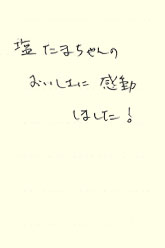 塩たまちゃんの
おいしさに 感動
しました!